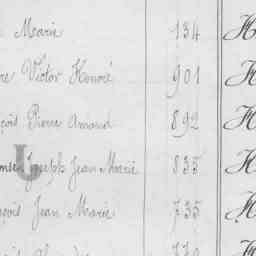 Marie 134 H
re Victor Honoré 901 H
çois Pierre Amand 892 H
Joseph Jean Marie 835 H
çois Jean Marie 735 H